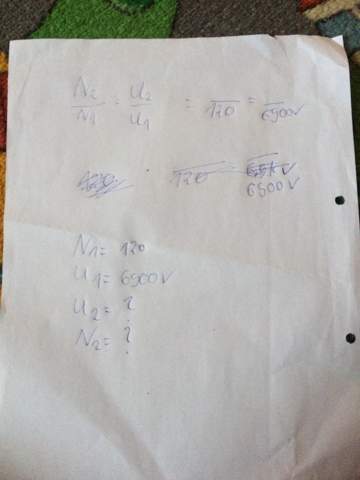 N2/N1 = U2/U1 = /120 = /6900V
120
6500V
N1 = 120
U1 = 6900V
U2 = ?
N2 = ?